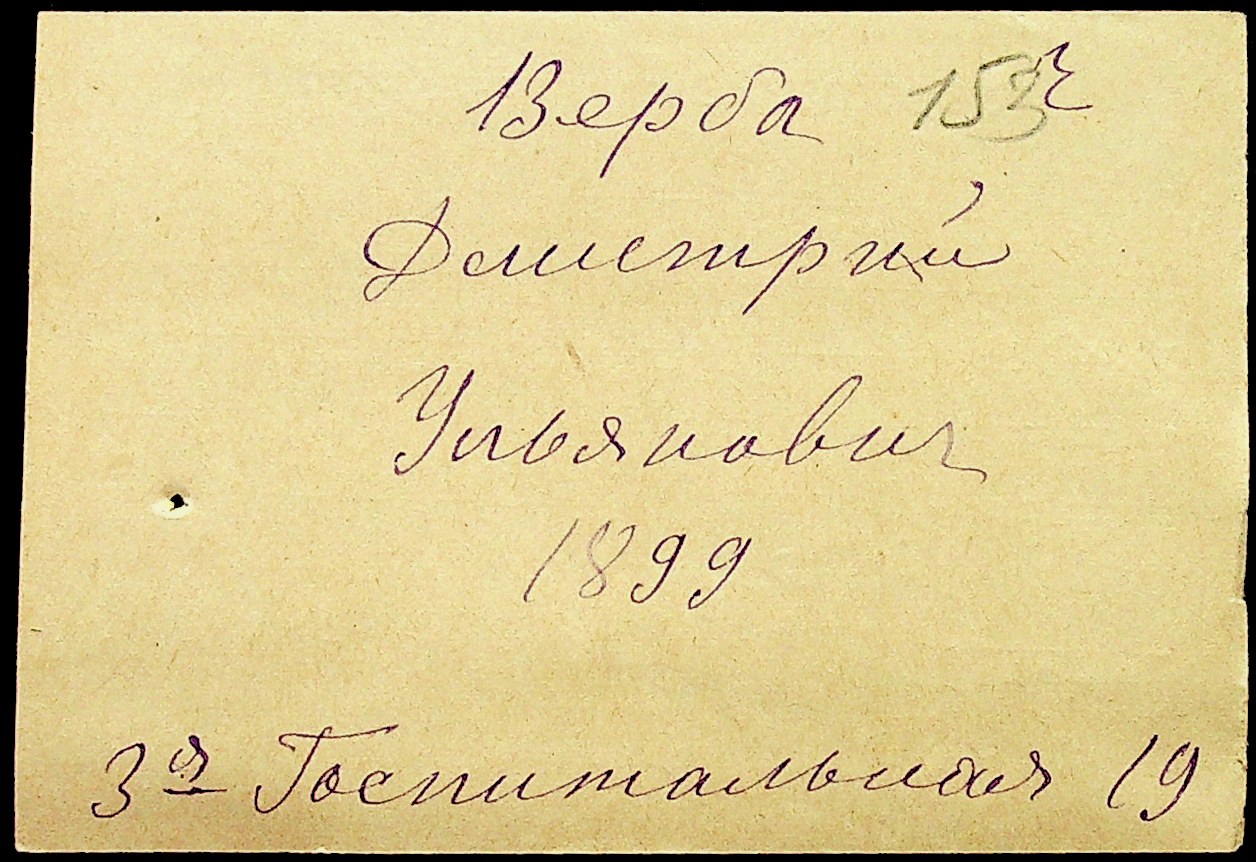 Верба 153 г
Дмистрий
Ульянович
1899
3я Госпитальная 19